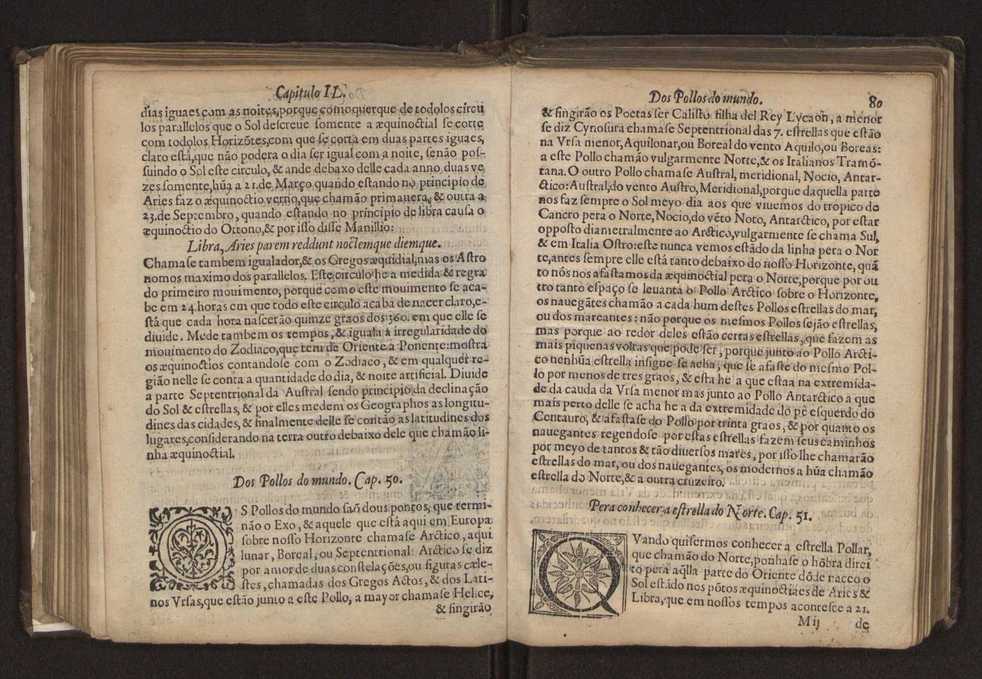 Capitulo IL.
dias iguaes com as noites, porque como quer que de todolos circu
los parallelos que o Sol descreue somente a æquinoctial se corte
com todolos Horizõtes, com que se corta em duas partes iguaes,
claro está, que não podera o dia ser igual com a noite, senão pos-
suindo o Sol este circulo, & ande debaxo delle cada anno duas ve
zes somente, hũa a 21. de Março quando estando no principio de
Aries faz o æquinoctio verno, que chamão primauera, & outra a
23. de Septembro, quando estando no principio de libra causa o
æquinoctio do Ottono, & por isso disse Manilio:
Libra, Aries parem reddunt noctemque diemque.
Chamase tambem igualador, & os Gregos æquidial, mas os Astro
nomos maximo dos parallelos. Este circulo he a medida & regra
do primeiro mouimento, porque como este mouimento se aca-
be em 24. horas em que todo este circulo acaba de nacer claro, e-
stá que cada hora nascerão quinze graos dos 360. em que elle se
diuide. Mede tambem os tempos, & iguala a irregularidade do
mouimento do Zodiaco, que tem de Oriente a Ponente: mostra
os æquinoctios contandose com o Zodiaco, & em qualquer re-
gião nelle se conta a quantidade do dia, & noite artificial. Diuide
a parte Septentrional da Austral sendo principio da declinação
do Sol & estrellas, & por elles medem os Geographos as longitu-
dines das cidades, & finalmente delle se contão as latitudines dos
lugares, considerando na terra outro debaixo dele que chamão li-
nha æquinoctial.
Dos Pollos do mundo. Cap. 50.
OS Pollos do mundo saõ dous pontos, que termi-
não o Exo, & aquele que está aqui em Europa
sobre nosso Horizonte chamase Arctico, aqui
lunar, Boreal, ou Septentrional: Arctico se diz
por amor de duas constelações, ou figuras cæle-
stes, chamadas dos Gregos Actos, & dos Lati-
nos Vrsas, que estão junto a este Pollo, a mayor chamase Helice,
& fingirão
Dos Pollos do mundo. 80
& fingirão os Poetas ser Calisto filha del Rey Lycaon, a menor
se diz Cynosura chamase Septentrional das 7. estrellas que estão
na Vrsa menor, Aquilonar, ou Boreal do vento Aquilo, ou Boreas:
a este Pollo chamão vulgarmente Norte, & os Italianos Tramõ-
tana. O outro Pollo chamase Austral, meridional, Nocio, Antar-
ctico: Austral, do vento Austro, Meridional, porque daquella parte
nos faz sempre o Sol meyo dia aos que viuemos do tropico de
Cancro pera o Norte, Nocio, do vẽto Noto, Antarctico, por estar
opposto diametralmente ao Arctico, vulgarmente se chama Sul,
& em Italia Ostro: este nunca vemos estãdo da linha pera o Nor
te, antes sempre elle está tanto debaixo do nosso Horizonte, quã
to nòs nos afastamos da æquinoctial pera o Norte, porque por ou
tro tanto espaço se leuanta o Pollo Arctico sobre o Horizonte,
os nauegãtes chamão a cada hum destes Pollos estrellas do mar,
ou dos mareantes: não porque os mesmos Pollos sejão estrellas,
mas porque ao redor deles estão certas estrellas, que fazem as
mais piquenas voltas que pòde ser, porque junto ao Pollo Arcti-
co nenhũa estrella insigne se acha, que se afaste do mesmo Pol-
lo por menos de tres graos, & esta he a que estaa na extremida-
de da cauda da Vrsa menor mas junto ao Pollo Antarctico a que
mais perto delle se acha he a da extremidade do pè esquerdo do
Centauro, & afastase do Pollo por trinta graos, & por quanto os
nauegantes regendose por estas estrellas fazem seus caminhos
por meyo de tantos & tão diuersos mares, por isso lhe chamarão
estrellas do mar, ou dos nauegantes, os modernos a hũa chamão
estrella do Norte, & a outra cruzeiro.
Pera conhecer a estrella do Norte. Cap. 51.
QVando quisermos conhecer a estrella Pollar,
que chamão do Norte, ponhase o hõbra direi
to pera aq̃lla parte do Oriente dõde nacco o
Sol estãdo nos põtos æquinoctiaes de Aries &
Libra, que em nossos tempos acontesce a 21.
Mij de